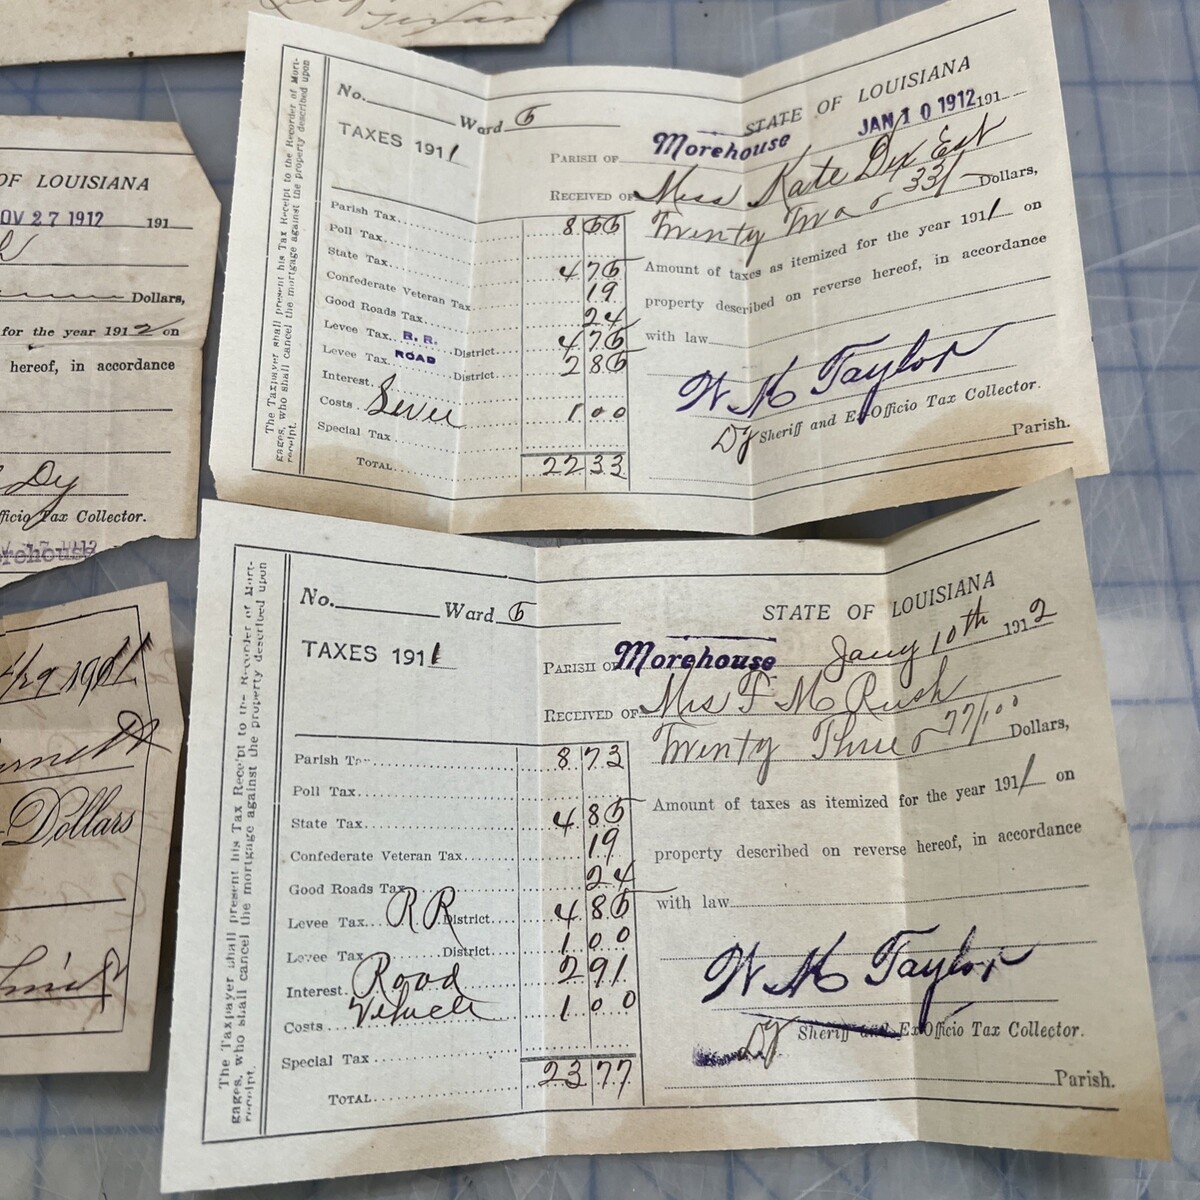 The Taxpayer shall present his Tax Receipt to the Recorder of Mort-
gages, who shall cancel the mortgage against the property described upon
receipt.
No. Ward 5
TAXES 1911
STATE OF LOUISIANA
JAN 10 1912 191
PARISH OF Morehouse
RECEIVED OF Miss Kate Dix Est
Twenty Two & 33/ Dollars,
Amount of taxes as itemized for the year 1911 on
property described on reverse hereof, in accordance
with law
W M Taylor
Dy Sheriff and Ex-Officio Tax Collector.
Parish.
Parish Tax 8 55
Poll Tax
State Tax 4 75
Confederate Veteran Tax 19
Good Roads Tax 24
Levee Tax R. R. District 4 75
Levee Tax ROAD District 2 85
Interest
Costs 1 00
Special Tax
TOTAL 22 33
The Taxpayer shall present his Tax Receipt to the Recorder of Mort-
gages, who shall cancel the mortgage against the property described upon
receipt.
No. Ward 5
TAXES 1911
STATE OF LOUISIANA
Jany 10th 1912
PARISH OF Morehouse
RECEIVED OF Mrs F M Rush
Twenty Three & 77/100 Dollars,
Amount of taxes as itemized for the year 1911 on
property described on reverse hereof, in accordance
with law
W M Taylor
Dy Sheriff and Ex-Officio Tax Collector.
Parish.
Parish Tax 8 73
Poll Tax
State Tax 4 85
Confederate Veteran Tax 19
Good Roads Tax 24
Levee Tax R R District 4 85
Levee Tax District 1 00
Interest Road 2 91
Costs Vehicle 1 00
Special Tax
TOTAL 23 77
OF LOUISIANA
OV 27 1912 191
Dollars,
for the year 1912 on
hereof, in accordance
Dy
fficio Tax Collector.
rehouse
Dollars